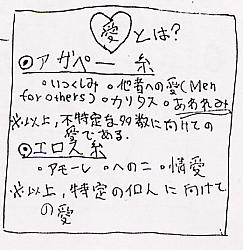 愛とは?
◎アガペー系
・いつくしみ ・他者への愛(Men
for others) ・カリタス ・あわれみ
※以上、不特定な多数に向けての
愛である.
◎エロス系
・アモーレ ・への二 ・情愛
※以上、特定の個人に向けて
の愛